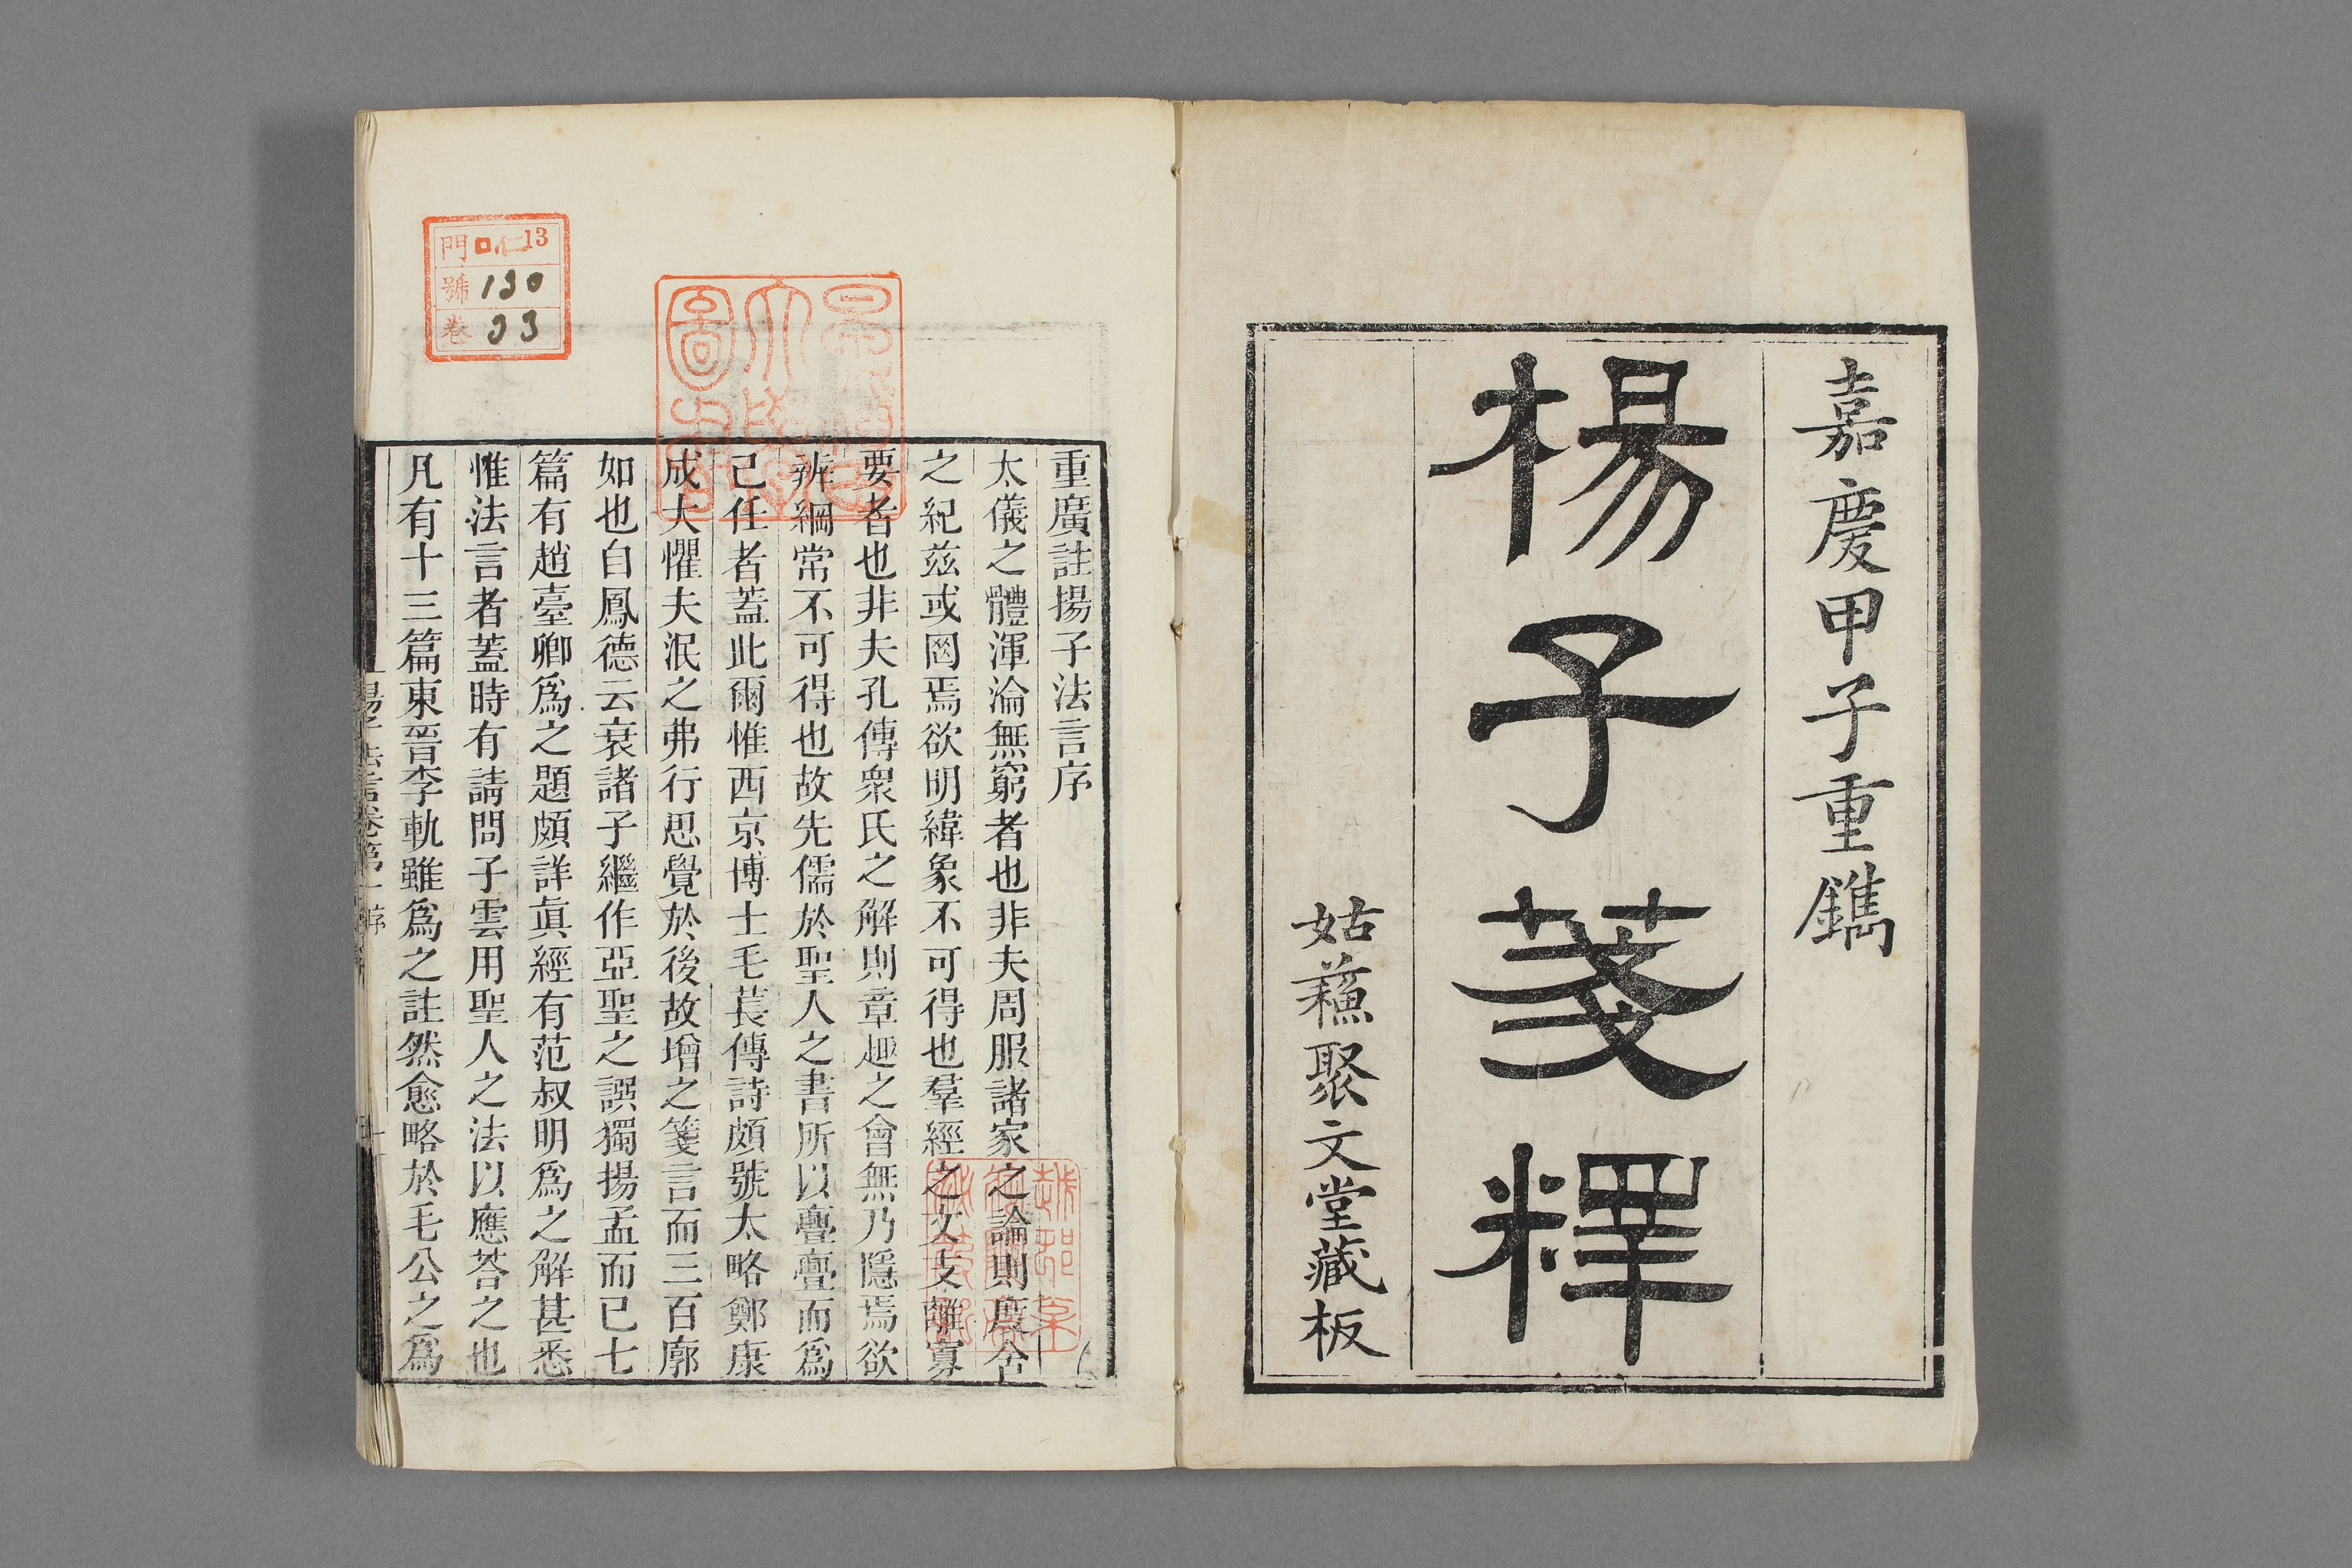 嘉慶甲子重鐫
楊子箋釋
姑蘓聚文堂藏板
重廣註揚子法言序
太儀之體渾淪無窮者也非夫周服諸家之論則度舍
之紀茲或罔焉欲明緯象不可得也羣經之文支離寡
要者也非夫孔傳衆氏之解則章趣之會無乃隱焉欲
辨綱常不可得也故先儒於聖人之書所以亹亹而爲
己任者蓋此爾惟西京博士毛萇傳詩頗號太略鄭康
成大懼夫泯之弗行思覺於後故增之箋言而三百廓
如也自鳳德云衰諸子繼作亞聖之譔獨揚孟而已七
篇有趙臺卿爲之題頗詳眞經有范叔明爲之解甚悉
惟法言者蓋時有請問子雲用聖人之法以應荅之也
凡有十三篇東晉李軌雖爲之註然愈略於毛公之爲
揚子法言卷第一 序 一
門 口仁13
號 130
卷 33